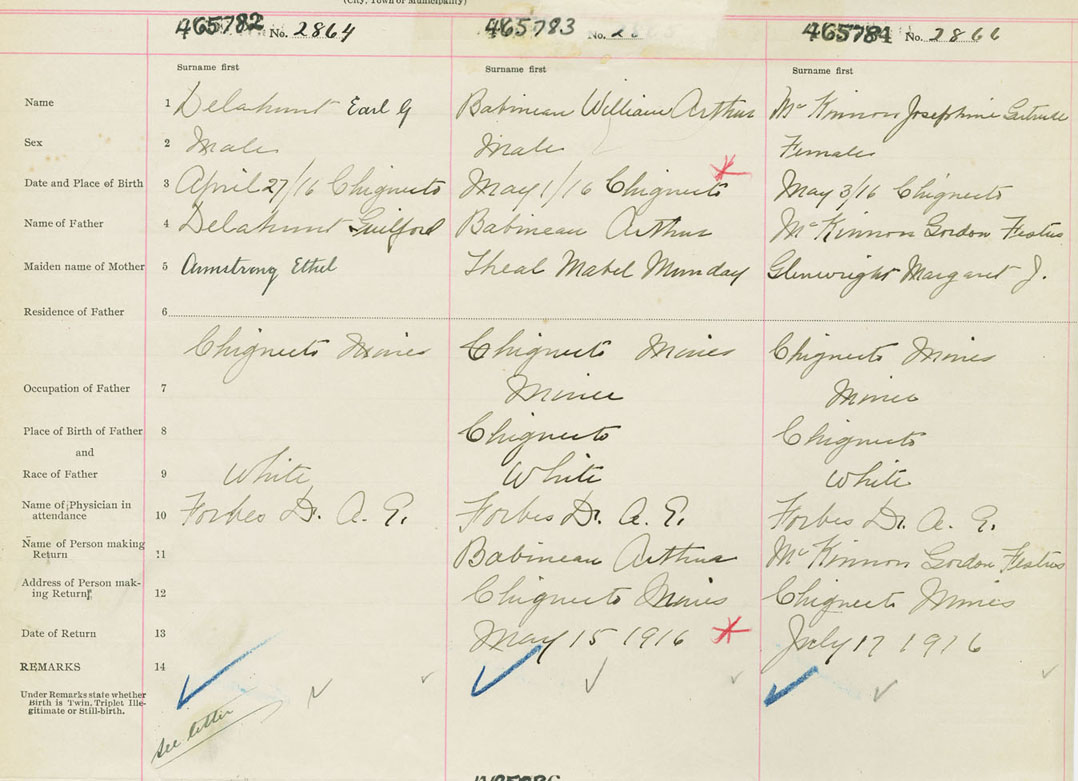 (City, Town or Municipality)
465782 No. 2864
465783 No. 2
465784 No. 2866
Surname first
Surname first
Surname first
Name 1 Delahunt Earl G
Babineau William Arthur
McKinnon Josephine Gertrude
Sex 2 Male
Male
Female
Date and Place of Birth 3 April 27/16 Chignecto
May 1/16 Chignecto
May 3/16 Chignecto
Name of Father 4 Delahunt Guilford
Babineau Arthur
McKinnon Gordon Festus
Maiden name of Mother 5 Armstrong Ethel
Theal Mabel Munday
Glenwright Margaret J.
Residence of Father 6
Chignecto Mines
Chignecto Mines
Chignecto Mines
Occupation of Father 7
Miner
Miner
Place of Birth of Father 8
Chignecto
Chignecto
and
Race of Father 9 White
White
White
Name of Physician in
attendance 10 Forbes Dr. A. E.
Forbes Dr. A. E.
Forbes Dr. A. E.
Name of Person making
Return 11
Babineau Arthur
McKinnon Gordon Festus
Address of Person mak-
ing Return 12
Chignecto Mines
Chignecto Mines
Date of Return 13
May 15 1916
July 17 1916
REMARKS 14
Under Remarks state whether
Birth is Twin, Triplet Ille-
gitimate or Still-birth.
see letter